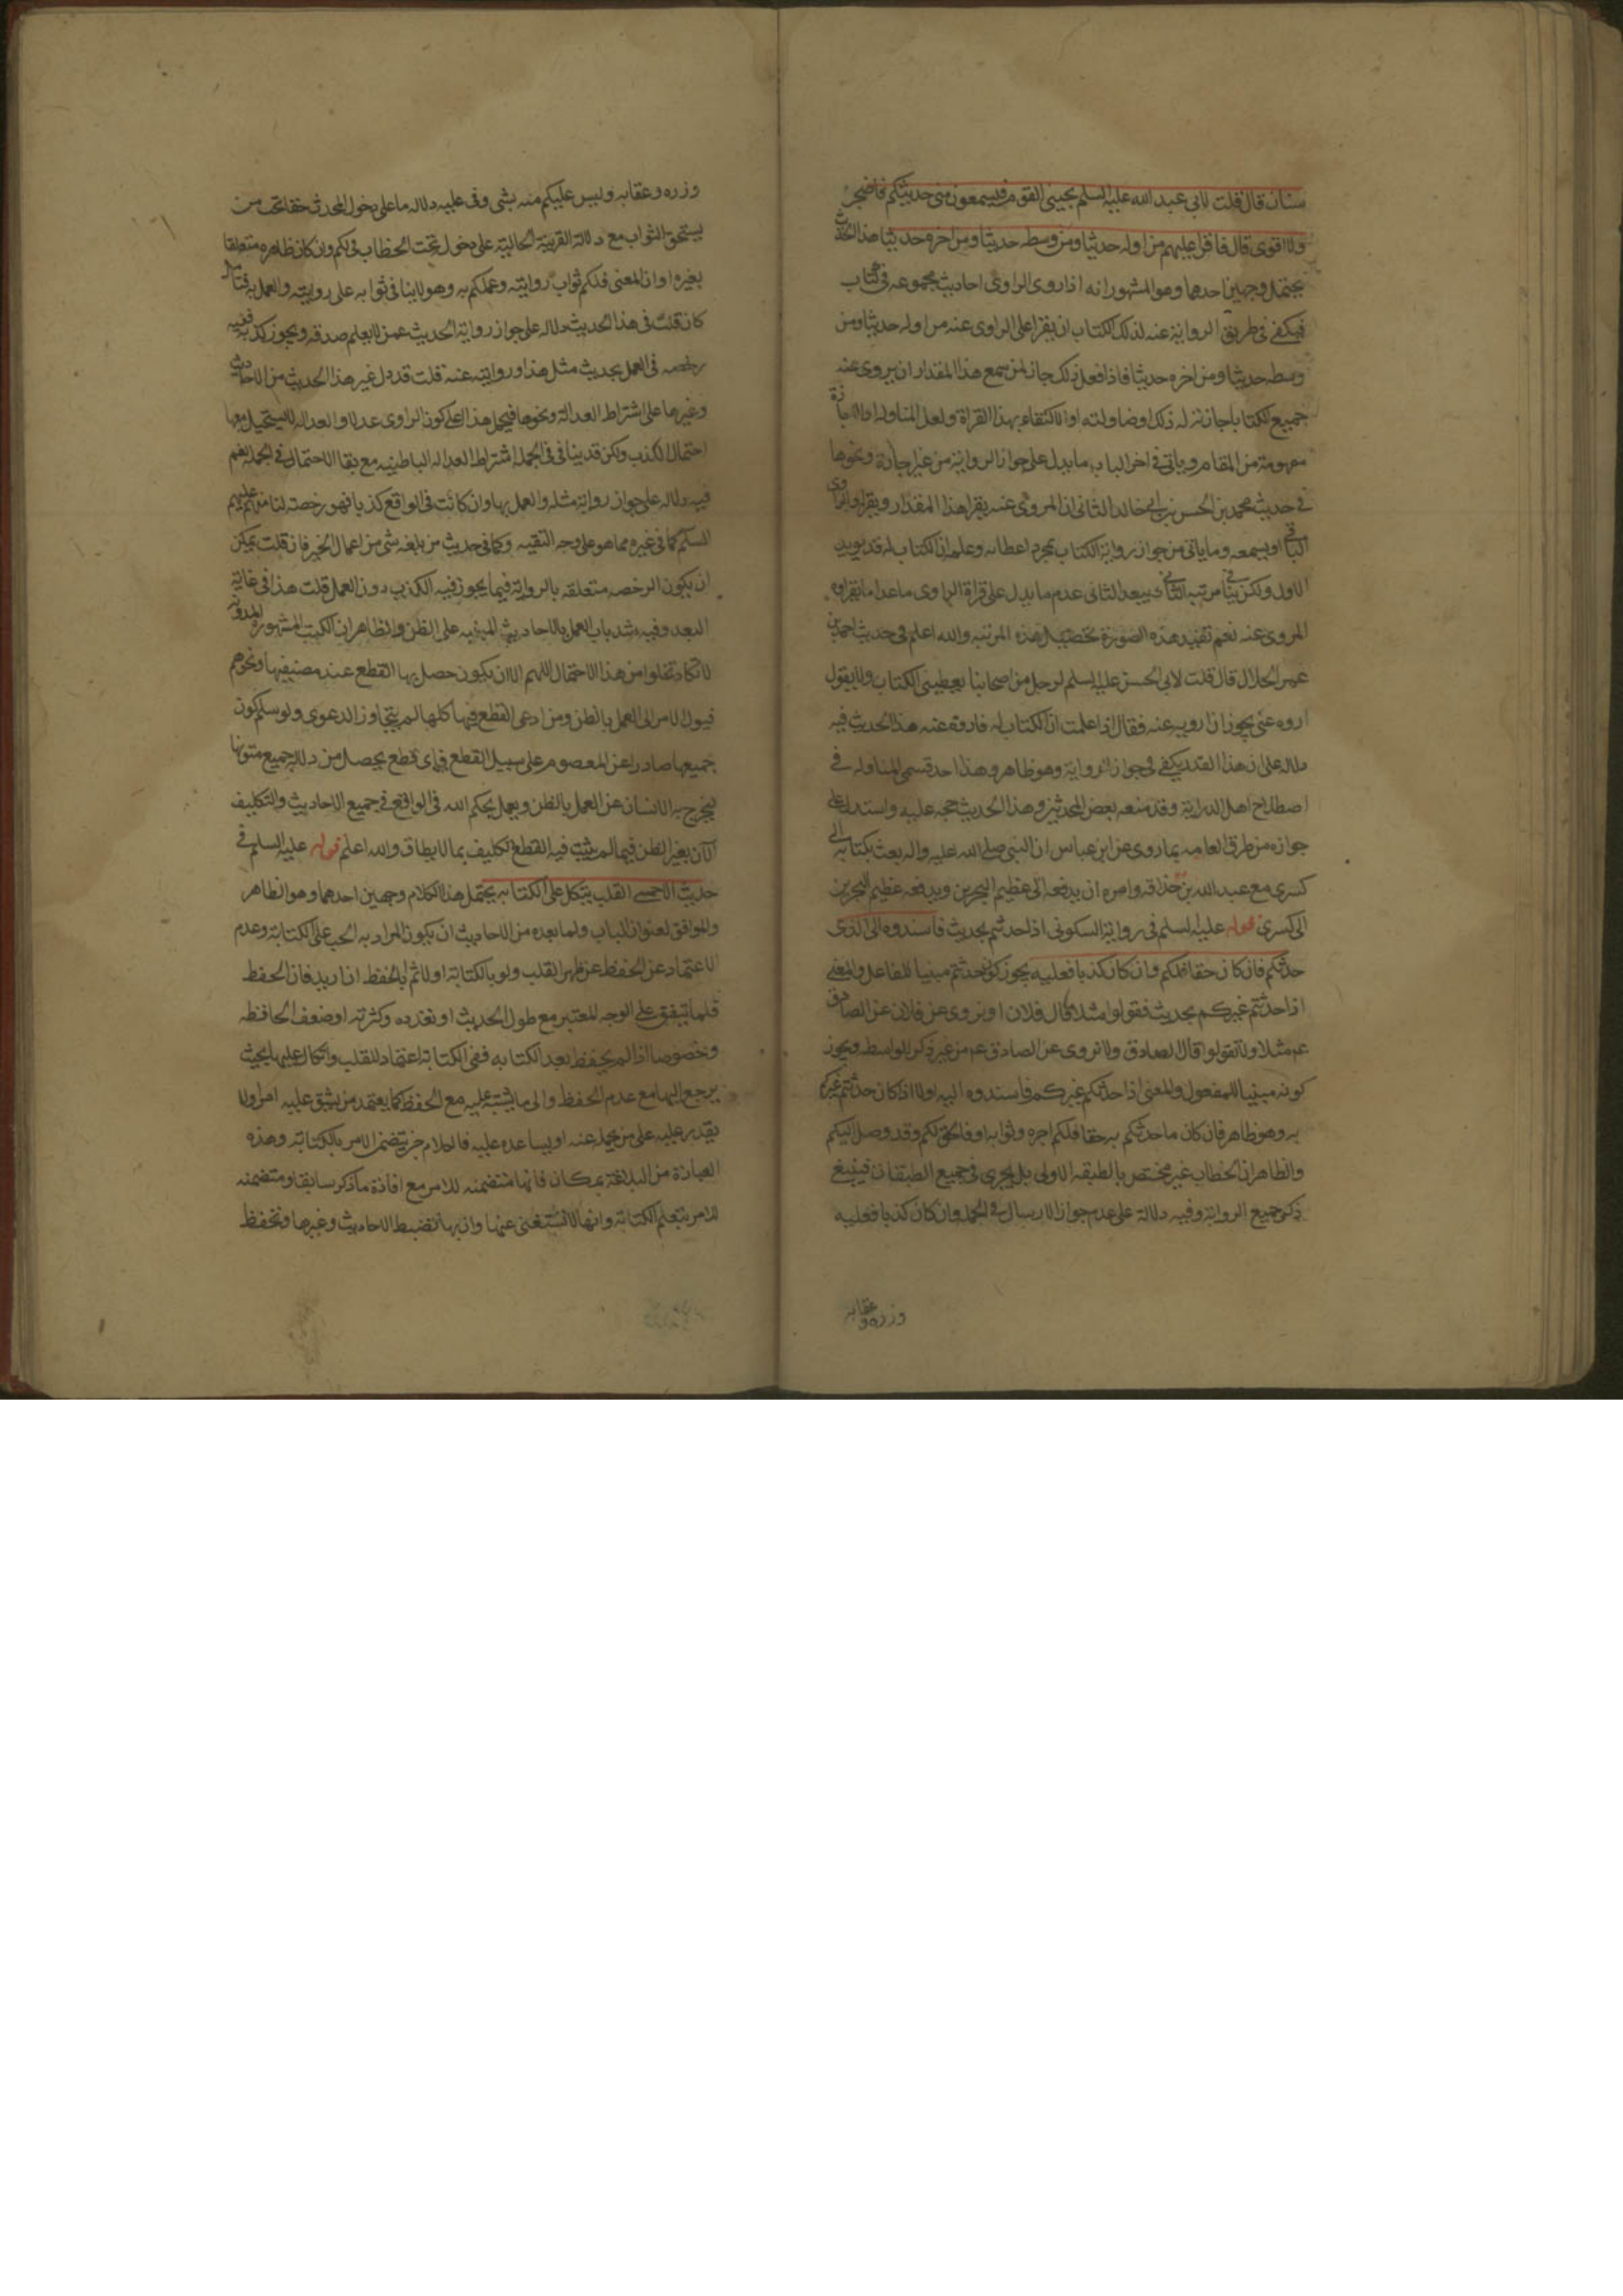 سنان قال قلت لابي عبد الله عليه السلم يجيئني القوم فيسمعون مني حديثكم فاضجر
ولا اقوى قال فاقرا عليهم من اوله حديثا ومن وسطه حديثا ومن اخره حديثا هذا الحديث
يحتمل وجهين احدهما وهو المشهور انه اذا روى الراوى احاديث مجموعه في كتاب
فيكفي في طريق الرواية عنه لذلك الكتاب ان يقرا على الراوى عنه من اوله حديثا ومن
وسطه حديثا ومن اخره حديثا فاذا فعل ذلك جاز لمن سمع هذا المقدار ان يروى عنه
جميع الكتاب باجازته له ذلك او مناولته او الاكتفاء بهذا القراة ولعل المناوله او الاجازة
مفهومة من المقام وياتي في اخر الباب ما يدل على جواز الرواية من غير اجازة ونحوها
في حديث محمد بن الحسن بن ابي خالد الثاني ان المروى عنه يقرا هذا المقدار ويقرا الراوى
الباقي او يسمعه وما ياتي من جواز رواية الكتاب بمجرد اعطائه وعلم ان الكتاب له قد يويد
الاول ولكن ينافي مرتبه الثاني يبعد الثاني عدم ما يدل على قراة الراوى ما عدا ما يقراه
المروى عنه نعم تفيد هذه الصورة تحصيل هذه المرتبه والله اعلم في حديث احمد بن
عمر الحلال قال قلت لابي الحسن عليه السلم الرجل من اصحابنا يعطيني الكتاب ولا يقول
اروه عني يجوز ان ارويه عنه فقال اذا علمت ان الكتاب له فاروه عنه هذا الحديث فيه
دلاله على ان هذا القدر يكفي في جواز الرواية وهو ظاهر وهذا احد قسمي المناوله في
اصطلاح اهل الدراية وقد منعه بعض المحدثين وهذا الحديث حجه عليه واستدل على
جوازه من طرق العامه بما روى عن ابن عباس ان النبي صلى الله عليه واله بعث بكتابه الى
كسرى مع عبد الله بن حذافه وامره ان يدفعه الى عظيم البحرين ويدفعه عظيم البحرين
الى كسرى قوله عليه السلم في رواية السكوني اذا حدثتم بحديث فاسندوه الى الذى
حدثكم فان كان حقا فلكم وان كان كذبا فعليه يجوز كون حدثتم مبنيا للفاعل والمعنى
اذا حدثتم غيركم بحديث فقولوا مثلا قال فلان او نروى عن فلان عن الصادق
عم مثلا ولا تقولوا قال الصادق ولا نروى عن الصادق عم من غير ذكر الواسطه ويجوز
كونه مبنيا للمفعول والمعنى اذا حدثكم غيركم فاسندوه اليه اولا اذا كان حدثتم غيركم
به وهو ظاهر فان كان ما حدثكم به حقا فلكم اجره وثوابه او فالحق لكم وقد وصل اليكم
والظاهر ان الخطاب غير مختص بالطبقه الاولى بل يجرى في جميع الطبقات فينبغي
ذكر جميع الرواية وفيه دلالة على عدم جواز الارسال في الجمله وان كان كذبا فعليه
وزره وعقابه
وزره وعقابه وليس عليكم منه بشي وفي عليه دلاله ما على دخول المحدث حقا تحت من
يستحق الثواب مع دلالة القرينة الحالية على دخوله تحت الخطاب في لكم وان كان ظاهره متعلقا
بغيره او ان المعنى فلكم ثواب روايته وعملكم به وهو لا ينافي ثوابه على روايته والعمل به فتامل
كان قلت في هذا الحديث دلاله على جواز رواية الحديث عمن لا يعلم صدقه ويجوز كذبه ففيه
رخصه في العمل بحديث مثل هذا وروايته عنه قلت قد دل غير هذا الحديث من الاحاديث
وغيرها على اشتراط العدالة ونحوها فيحمل هذا على كون الراوى عدلا والعداله لا يستحيل معها
احتمال الكذب ولكن قد ينافي في الجمله اشتراط العداله الباطنيه مع بقا الاحتمال في الجمله نعم
فيه دلاله على جواز رواية مثله والعمل بها وان كانت في الواقع كذبا فهو رخصه لنا منهم عليهم
السلم كما في غيره مما هو على وجه التقيه وكما في حديث من بلغه شي من اعمال الخير فان قلت يمكن
ان يكون الرخصه متعلقه بالرواية فيما يجوز فيه الكذب دون العمل قلت هذا في غاية
البعد وفيه سد باب العمل بالاحاديث المبنيه على الظن والظاهر ان الكتب المشهورة المدونه
لا تكاد تخلوا من هذا الاحتمال اللهم الا ان يكون حصل بها القطع عند مصنفيها ونحوهم
فيول الامر الى العمل بالظن ومن ادعى القطع فيها كلها لم يتجاوز الدعوى ولو سلم كون
جميعها صادرا عن المعصوم على سبيل القطع فاى قطع يحصل من دلاله جميع متونها
ليخرج به الانسان عن العمل بالظن ويعمل بحكم الله في الواقع في جميع الاحاديث والتكليف
الان بغير الظن فيما لم يثبت فيه القطع تكليف بما لا يطاق والله اعلم قوله عليه السلم في
حديث الاحمسي القلب يتكل على الكتابه يحتمل هذا الكلام وجهين احدهما وهو الظاهر
والموافق لعنوان الباب ولما بعده من الاحاديث ان يكون المراد به الحث على الكتابة وعدم
الاعتماد عن الحفظ عن ظهر القلب ولو بالكتابة اولا ثم بالحفظ ان اريد فان الحفظ
قلما يتفق على الوجه المعتبر مع طول الحديث او تعدده وكثرته او ضعف الحافظه
وخصوصا اذا لم يحفظ بعد الكتابه ففي الكتابة اعتماد للقلب واتكال عليها بحيث
يرجع اليها مع عدم الحفظ والى ما يشتبه عليه مع الحفظ كما يعتمد من يشق عليه امر اولا
يقدر عليه على من يحمله عنه او يساعده عليه فالكلام خبر يتضمن الامر بالكتابة وهذه
العبارة من البلاغة بمكان فانها متضمنه للامر مع افادة ما ذكر سابقا ومتضمنه
للامر بتعلم الكتابة وانها لا تستغنى عنها وان بها تضبط الاحاديث وغيرها وتحفظ